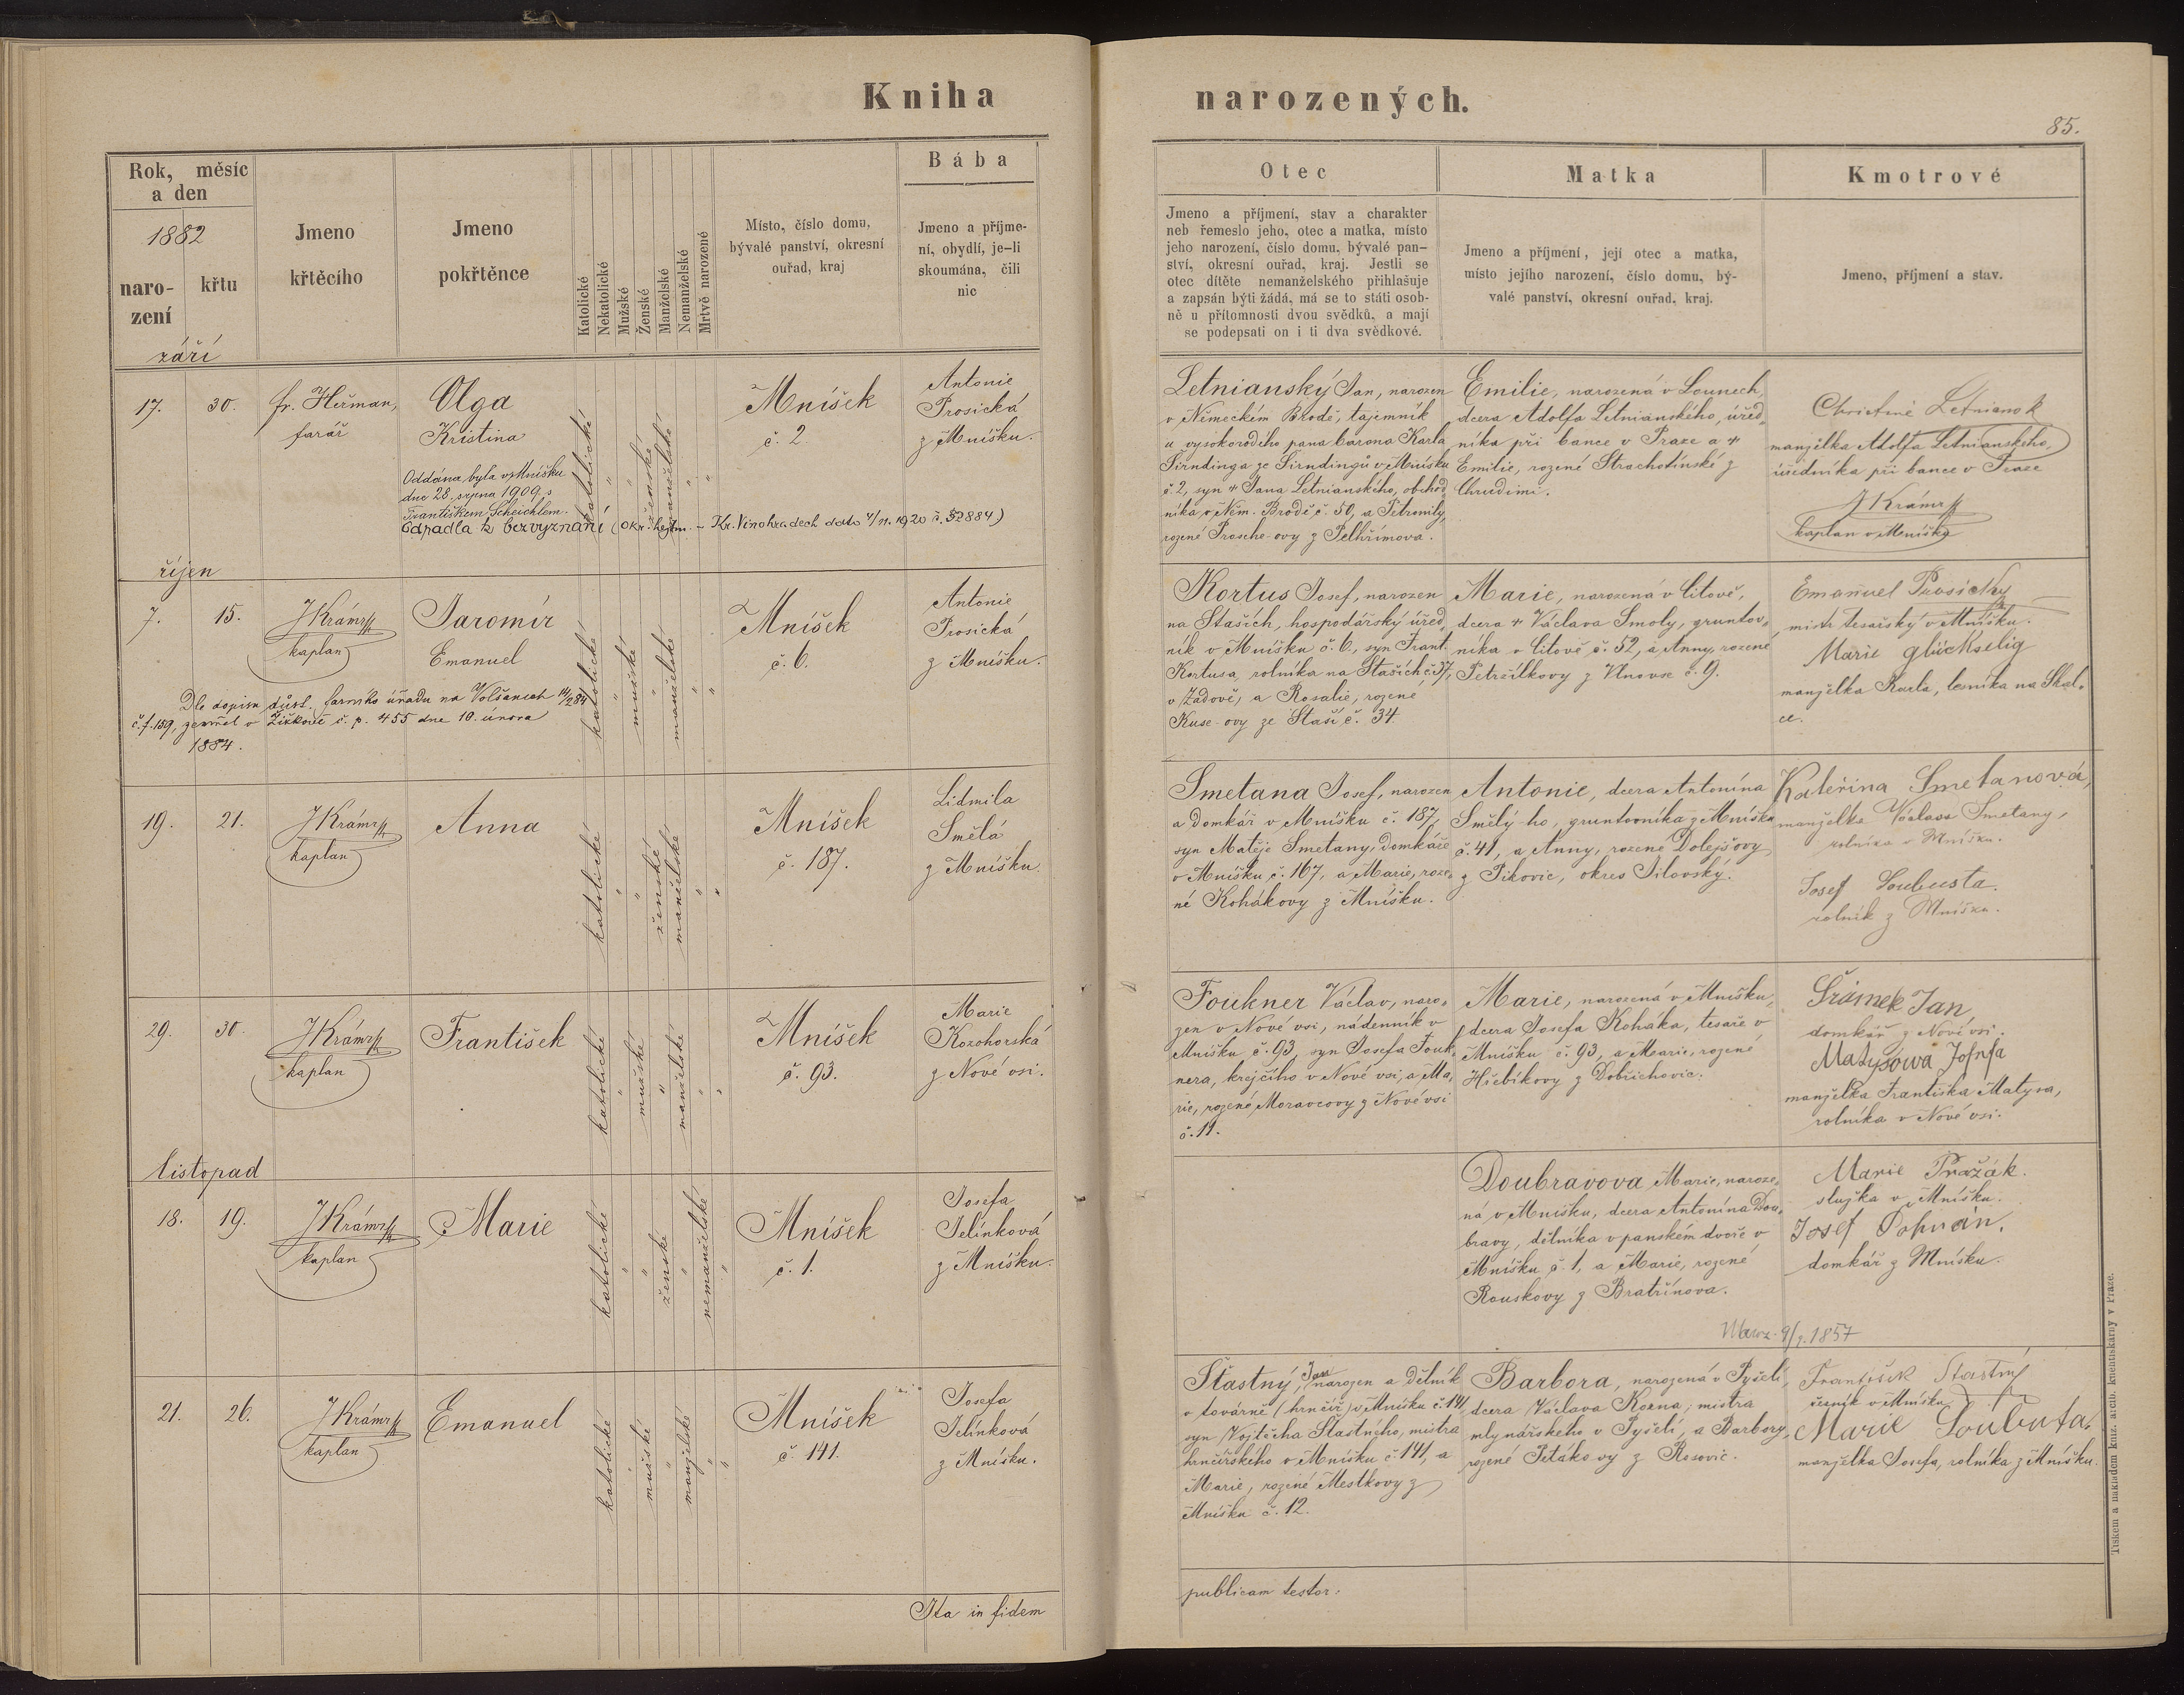 Kniha
narozených.
85.
Rok, měsíc
a den
1882
naro-
zení
křtu
září
Jmeno
křtěcího
Jmeno
pokřtěnce
Katolické
Nekatolické
Mužské
Ženské
Manželské
Nemanželské
Mrtvě narozené
Místo, číslo domu,
bývalé panství, okresní
ouřad, kraj
Bába
Jmeno a příjme-
ní, obydlí, je-li
skoumána, čili
nic
Otec
Jmeno a příjmení, stav a charakter
neb řemeslo jeho, otec a matka, místo
jeho narození, číslo domu, bývalé pan-
ství, okresní ouřad, kraj. Jestli se
otec dítěte nemanželského přihlašuje
a zapsán býti žádá, má se to státi osob-
ně u přítomnosti dvou svědků, a mají
se podepsati on i ti dva svědkové.
Matka
Jmeno a příjmení, její otec a matka,
místo jejího narození, číslo domu, bý-
valé panství, okresní ouřad, kraj.
Kmotrové
Jmeno, příjmení a stav.
17.
30.
fr. Heřman,
farář
Olga
Kristina
Oddána byla v Mníšku
dne 28. srpna 1909 s
Františkem Scheichlem.
Odpadla k bezvyznání (okr. hejtm. – Kr. Vinohradech dato 4/11. 1920 č. 52884)
katolické
"
"
ženské
manželské
"
"
Mníšek
č. 2
Antonie
Prosická
z Mníšku.
Letnianský Jan, narozen
v Německém Brodě, tajemník
u vysokorodého pana barona Karla
Sirndinga ze Sirndingů v Mníšku
č. 2, syn + Jana Letnianského, obchod
níka v Něm. Brodě č. 50, a Petronily,
rozené Prosche-ovy z Pelhřimova.
Emilie, narozená v Lounech,
dcera Adolfa Letnianského, úřed
níka při bance v Praze a +
Emilie, rozené Strachotínské z
Chrudimi.
Christine Letniansk
manželka Adolfa Letnianského,
úředníka při bance v Praze
J Krámář
kaplan v Mníšku
říjen
7.
15.
J Krámář
kaplan
Jaromír
Emanuel
Dle dopisu důst. farního úřadu na Volšanech 14/2 84
č. j. 159, zemřel v Žižkově č. p. 455 dne 10. února
1884.
katolické
"
mužské
"
manželské
"
"
Mníšek
č. 6.
Antonie
Prosická
z Mníšku.
Kortus Josef, narozen
na Stašich, hospodářský úřed
ník v Mníšku č. 6, syn Frant.
Kortusa, rolníka na Stašich č. 37,
v Zadově, a Rosalie, rozené
Kuse-ovy ze Staší č. 34
Marie, narozená v Citově,
dcera + Václava Smoly, gruntov
níka v Citově č. 52, a Anny, rozené
Petržílkovy z Vnovse č. 9.
Emanuel Prosický
mistr tesařský v Mníšku.
Marie Glückselig
manželka Karla, lesníka na Skal
ce.
19.
21.
J Krámář
kaplan
Anna
katolické
"
"
ženské
manželské
"
"
Mníšek
č. 187.
Lidmila
Smělá
z Mníšku.
Smetana Josef, narozen
a domkář v Mníšku č. 187,
syn Matěje Smetany, domkáře
v Mníšku č. 167, a Marie, roze
né Kohákovy z Mníšku.
Antonie, dcera Antonína
Smělý-ho, gruntovníka z Mníšku
č. 41, a Anny, rozené Dolejšovy
z Pikovic, okres Jílovský.
Kateřina Smetanová,
manželka Václava Smetany,
rolníka v Mníšku.
Josef Loubusta.
rolník z Mníšku.
29.
30.
J Krámář
kaplan
František
katolické
"
mužské
"
manželské
"
"
Mníšek
č. 93.
Marie
Kozohorská
z Nové vsi.
Foukner Václav, naro
zen v Nové vsi, nádenník v
Mníšku č. 93, syn Josefa Fouk
nera, krejčího v Nové vsi, a Ma
rie, rozené Moravcovy z Nové vsi
č. 11.
Marie, narozená v Mníšku,
dcera Josefa Koháka, tesaře v
Mníšku č. 93, a Marie, rozené
Hřebíkovy z Dobřichovic.
Šrámek Jan
domkář z Nové vsi.
Matysowa Josefa
manželka Františka Matysa,
rolníka v Nové vsi.
listopad
18.
19.
J Krámář
kaplan
Marie
katolické
"
"
ženské
"
nemanželské
"
Mníšek
č. 1.
Josefa
Jelínková
z Mníšku.
Doubravova Marie, naroze
ná v Mníšku, dcera Antonína Dou
bravy, dělníka v panském dvoře v
Mníšku č. 1, a Marie, rozené
Rouskovy z Bratřínova.
Naroz. 9/9. 1857
Marie Pražák.
služka v Mníšku.
Josef
domkář z Mníšku.
21.
26.
J Krámář
kaplan
Emanuel
katolické
"
mužské
"
manželské
"
"
Mníšek
č. 141.
Josefa
Jelínková
z Mníšku.
Šťastný, Jan narozen a dělník
v továrně (hrnčíř) v Mníšku č. 141,
syn Vojtěcha Šťastného, mistra
hrnčířského v Mníšku č. 141, a
Marie, rozené Mestkovy z
Mníšku č. 12.
Barbora, narozená v Pyšeli,
dcera Václava Kozna, mistra
mlynářského v Pyšeli, a Barbory,
rozené Petákovy z Rosovic.
František Šťastný
řezník v Mníšku
Marie Loubusta,
manželka Josefa, rolníka z Mníšku.
Ita in fidem
publicam testor:
Tiskem a nákladem kníž. arcib. knihtiskárny v Praze.